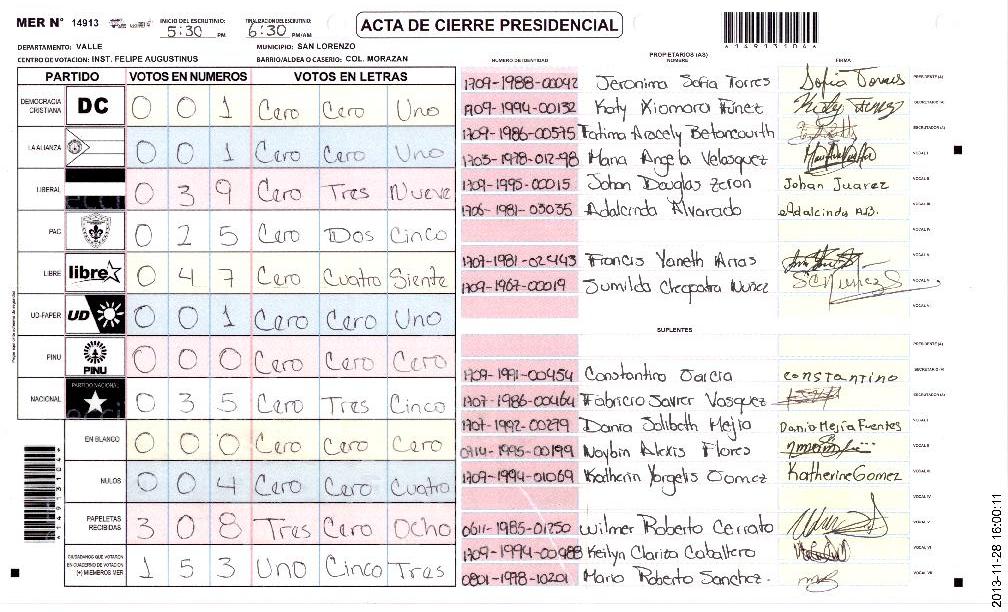 MER N° 14913 INICIO DEL ESCRUTINIO: 5:30 PM FINALIZACION DEL ESCRUTINIO: 6:30 PM/AM ACTA DE CIERRE PRESIDENCIAL
DEPARTAMENTO: VALLE MUNICIPIO: SAN LORENZO
CENTRO DE VOTACION: INST. FELIPE AUGUSTINUS BARRIO/ALDEA O CASERIO: COL. MORAZAN
PARTIDO VOTOS EN NUMEROS VOTOS EN LETRAS
DEMOCRACIA CRISTIANA DC 0 0 1 Cero Cero Uno
LA ALIANZA 0 0 1 Cero Cero Uno
LIBERAL 0 3 9 Cero Tres Nueve
PAC 0 2 5 Cero Dos Cinco
LIBRE libre 0 4 7 Cero Cuatro Siente
UD-FAPER UD 0 0 1 Cero Cero Uno
PINU PINU 0 0 0 Cero Cero Cero
NACIONAL PARTIDO NACIONAL 0 3 5 Cero Tres Cinco
EN BLANCO 0 0 0 Cero Cero Cero
NULOS 0 0 4 Cero Cero Cuatro
PAPELETAS RECIBIDAS 3 0 8 Tres Cero Ocho
CIUDADANOS QUE VOTARON EN CUADERNO DE VOTACION (+) MIEMBROS MER 1 5 3 Uno Cinco Tres
PROPIETARIOS (AS)
NUMERO DE IDENTIDAD NOMBRE FIRMA
1709-1988-00042 Jeronima Sofia Torres Sofia Torres PRESIDENTE(A)
1709-1994-00132 Katy Xiomara Núnez SECRETARIO(A)
1709-1986-00575 Fatima Aracely Betancourth ESCRUTADOR(A)
1703-1978-012-98 Maria Angela Velasquez VOCAL I
1709-1995-00015 Johan Douglas Zeron Johan Juarez VOCAL II
1706-1981-03035 Adalcinda Alvarado Adalcinda A.B. VOCAL III
VOCAL IV
1707-1981-02443 Francis Yaneth Arias VOCAL V
1709-1967-00019 Sumilda Cleopatra Nunez VOCAL VI
SUPLENTES
PRESIDENTE(A)
1709-1991-00454 Constantino Garcia constantino SECRETARIO(A)
1707-1986-00464 Fabricio Javier Vasquez ESCRUTADOR(A)
1707-1992-00279 Dania Solibeth Mejia Dania Mejia Fuentes VOCAL I
0714-1995-00199 Naybin Alexis Flores VOCAL II
1709-1994-01069 Katherin Yorgelis Gomez Katherine Gomez VOCAL III
VOCAL IV
0611-1985-01250 Wilmer Roberto Cerrato VOCAL V
1709-1994-00988 Keilyn Clarita Caballero VOCAL VI
0801-1978-10201 Mario Roberto Sanchez. VOCAL VII
2013-11-28 16:00:11